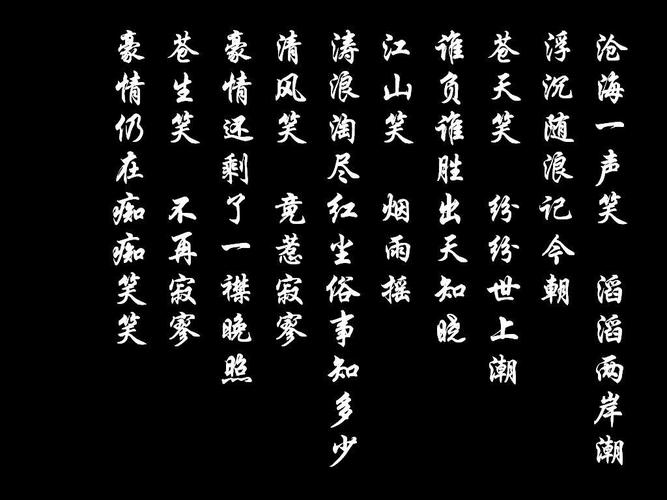 沧海一声笑 滔滔两岸潮
浮沉随浪记今朝
苍天笑 纷纷世上潮
谁负谁胜出天知晓
江山笑 烟雨摇
涛浪淘尽红尘俗事知多少
清风笑 竟惹寂寥
豪情还剩了一襟晚照
苍生笑 不再寂寥
豪情仍在痴痴笑笑